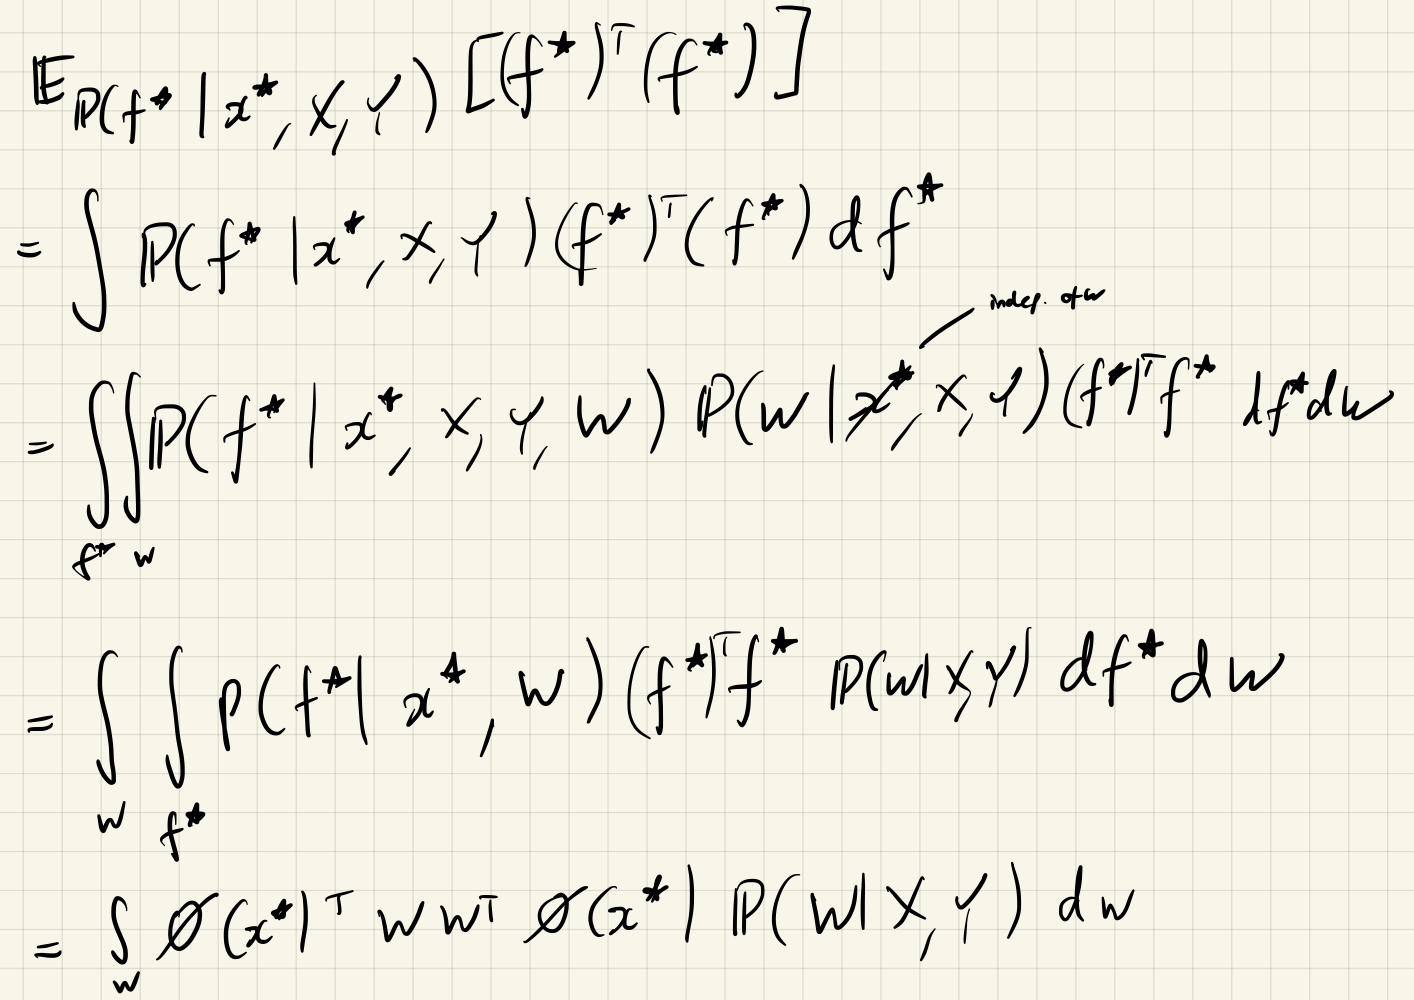 𝔼_{ℙ(f* | x*, X, Y)} [(f*)ᵀ(f*)]
= ∫ ℙ(f* | x*, X, Y)(f*)ᵀ(f*) df*
indep. of w
= ∫_{f*} ∫_{w} ℙ(f* | x*, X, Y, W) ℙ(W | x*, X, Y)(f*)ᵀf* df* dw
= ∫_{W} ∫_{f*} p(f* | x*, W)(f*)ᵀf* ℙ(W | X, Y) df* dw
= ∫_{w} ∅(x*)ᵀ W Wᵀ ∅(x*) ℙ(W | X, Y) dw